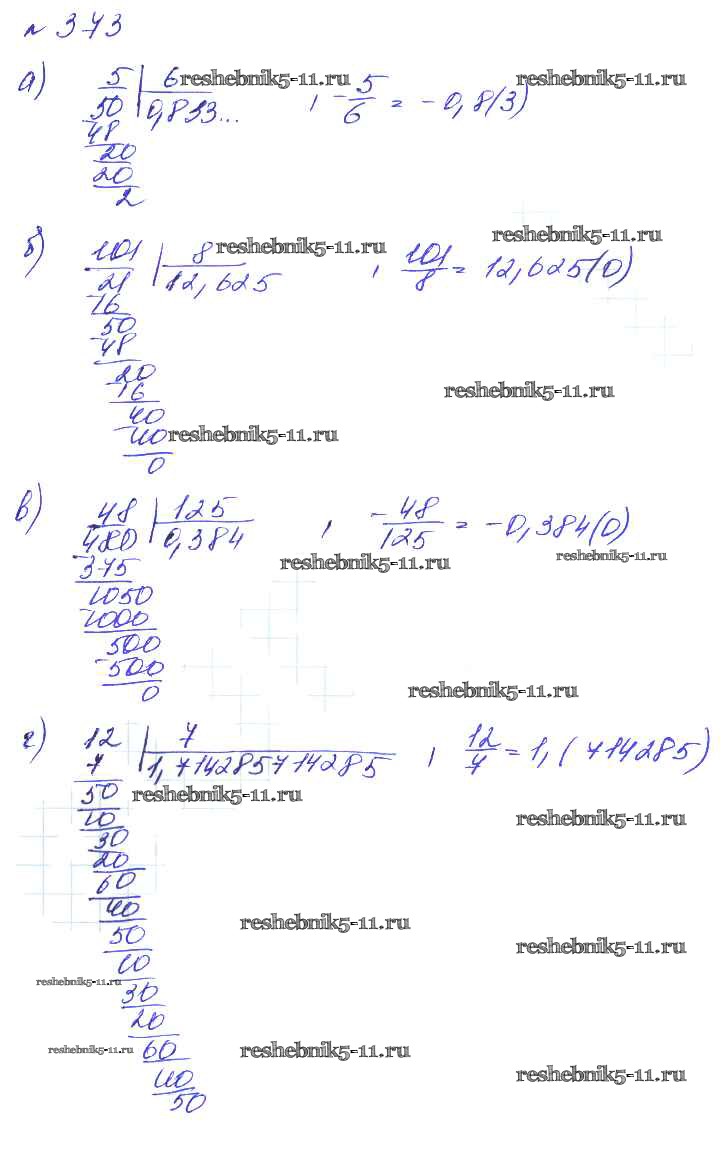 № 373
а) 5 | 6 reshebnik5-11.ru reshebnik5-11.ru
50 | 0,833... , -5/6 = -0,8(3)
48
20
20
2
б) 101 | 8 reshebnik5-11.ru reshebnik5-11.ru
21 | 12,625 , 101/8 = 12,625(0)
16
50
48
20
16 reshebnik5-11.ru
40
40 reshebnik5-11.ru
0
в) 48 | 125 , -48/125 = -0,384(0)
480 | 0,384
375 reshebnik5-11.ru reshebnik5-11.ru
1050
1000
500
500
0 reshebnik5-11.ru
г) 12 | 7 , 12/7 = 1,(714285)
7 | 1,714285714285
50 reshebnik5-11.ru
10 reshebnik5-11.ru
30
20
60
40 reshebnik5-11.ru
50 reshebnik5-11.ru
10
reshebnik5-11.ru 30
20
reshebnik5-11.ru 60 reshebnik5-11.ru
40 reshebnik5-11.ru
50